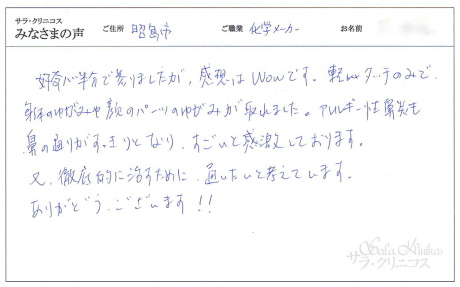 サラ・クリニコス
みなさまの声
ご住所 昭島市 ご職業 化学メーカー お名前
好奇心半分で参りましたが、感想はWowです。軽いタッチのみで、
身体のゆがみや顔のパーツのゆがみが取れました。アレルギー性鼻炎も
鼻の通りがすっきりとなり、すごいと感激しております。
又、徹底的に治すために、通いたいと考えています。
ありがとうございます!!
Sala Klinikos
サラ・クリニコス